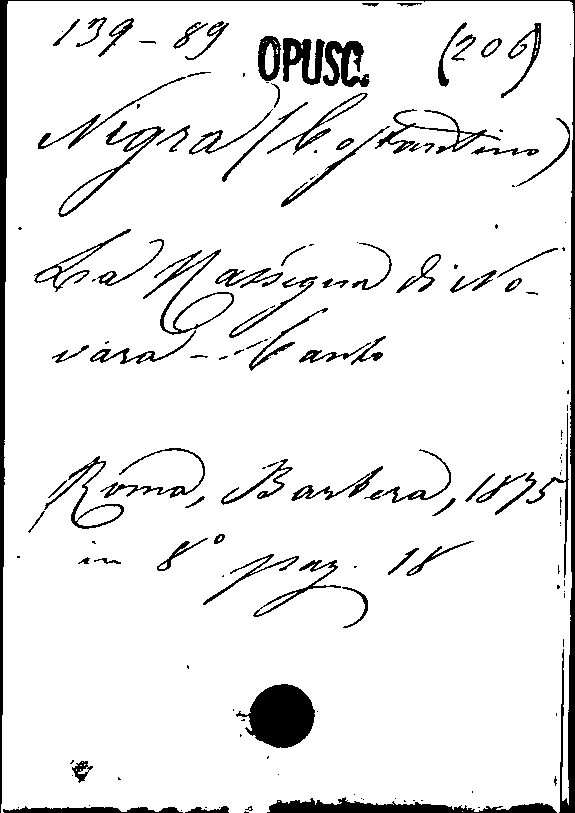 139-89 OPUSC. (206)
Nigra (Costantino)
La Rassegna di No-
vara - Canto
Roma, Barbera, 1875
in 8° pag. 18